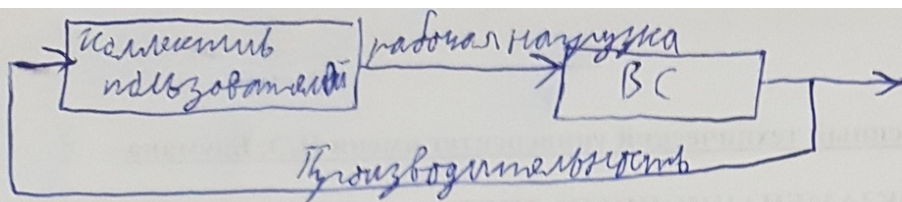 Коллектив
пользователей
рабочая нагрузка
ВС
Производительность